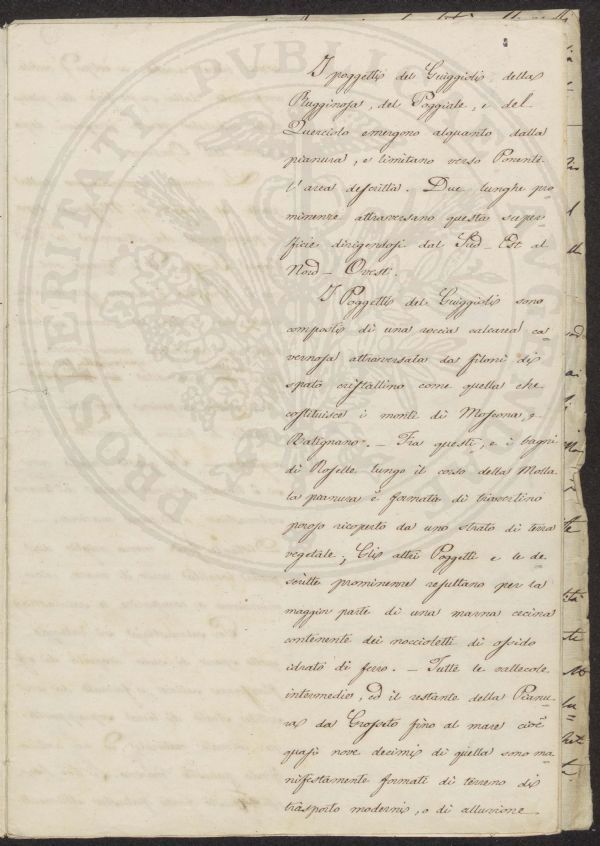 I poggetti del Guiggioli, della
Rugginosa, del Poggiale, e del
Querciolo emergono alquanto dalla
pianura, e limitano verso Ponente
l'area descritta. Due lunghe pro
minenze attraversano questa super=
ficie dirigendosi dal Sud-Est al
Nord-Ovest.
I Poggetti del Guiggioli sono
composti di una roccia calcarea ca=
vernosa attraversata da filoni di
spato cristallino come quella che
costituisce i monti di Moscona, e
Batignano. - Fra questi, e i bagni
di Roselle lungo il corso della Molla
la pianura è formata di travertino
poroso ricoperto da uno strato di terra
vegetale; Gli altri Poggetti e le de
scritte prominenze resultano per la
maggior parte di una marna cecina
contenente dei noccioletti di ossido
idrato di ferro. - Tutte le vallecole
intermedie, ed il restante della Pianu=
ra da Grosseto fino al mare cioè
quasi nove decimi di quella sono ma
nifestamente formati di terreno di
trasporto moderni, o di alluvione
PROSPERITATI PUBLICAE